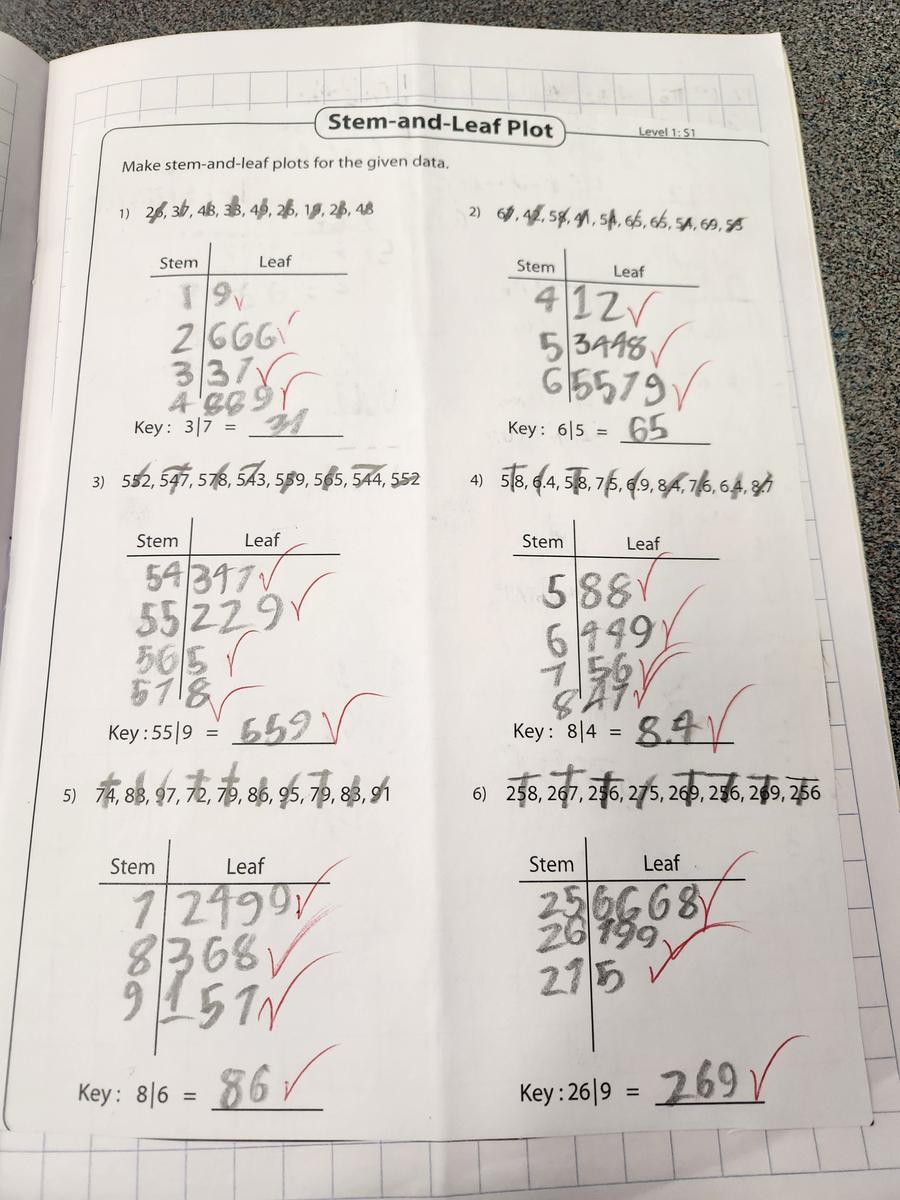 Stem-and-Leaf Plot
Level 1: S1
Make stem-and-leaf plots for the given data.
1) 26, 37, 48, 33, 49, 26, 19, 26, 48
Stem Leaf
1 9
2 666
3 37
4 889
Key : 3|7 = 37
2) 67, 42, 58, 41, 54, 65, 65, 54, 69, 53
Stem Leaf
4 12
5 3448
6 5579
Key : 6|5 = 65
3) 552, 547, 578, 543, 559, 565, 544, 552
Stem Leaf
54 347
55 229
56 5
57 8
Key : 55|9 = 559
4) 5.8, 6.4, 5.8, 7.5, 6.9, 8.4, 7.6, 6.4, 8.7
Stem Leaf
5 88
6 449
7 56
8 47
Key : 8|4 = 8.4
5) 74, 88, 97, 72, 79, 86, 95, 79, 83, 91
Stem Leaf
7 2499
8 368
9 157
Key : 8|6 = 86
6) 258, 267, 256, 275, 269, 256, 269, 256
Stem Leaf
25 6668
26 799
27 5
Key : 26|9 = 269